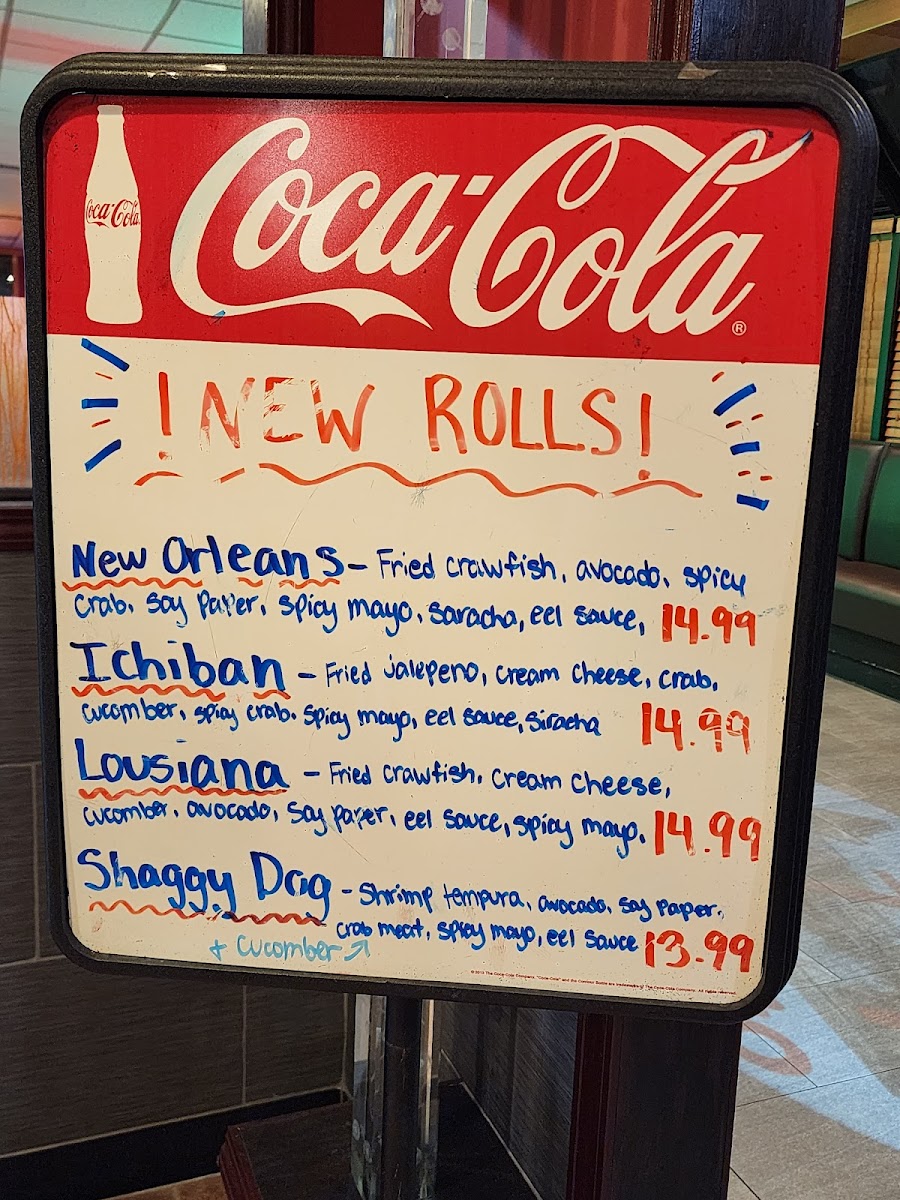 Coca-Cola
Coca-Cola®
! NEW ROLLS!
New Orleans - Fried crawfish, avocado, spicy
crab, soy paper, spicy mayo, saracha, eel sauce, 14.99
Ichiban - Fried jalepeno, cream cheese, crab,
cucomber, spicy crab, spicy mayo, eel sauce, siracha 14.99
Lousiana - Fried crawfish, cream cheese,
cucomber, avocado, soy paper, eel sauce, spicy mayo, 14.99
Shaggy Dog - shrimp tempura, avocado, soy paper,
crab meat, spicy mayo, eel sauce 13.99
+ cucomber ↗